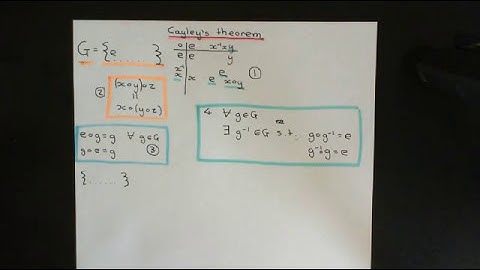 Cayley's theorem
G = {e ...... }
o e x⁻¹ x y
e e y
x⁻¹ e
x x e xoy ①
② (xoy)oz
=
xo(yoz)
eog=g ∀g∈G
goe=g ③
4 ∀ g∈G
∃ g⁻¹∈G s.t. gog⁻¹=e
g⁻¹og=e
{......}